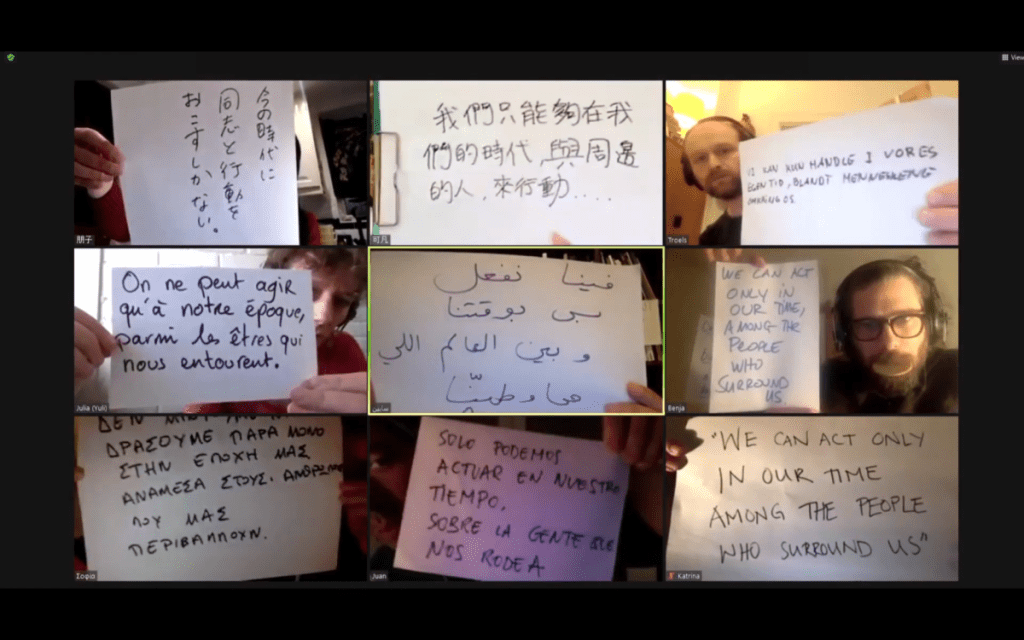 View
今の時代に
同志と行動を
おこすしかない。
朋子
我們只能夠在我
們的時代,與周邊
的人,來行動....
VI KAN KUN HANDLE I VORES
EGEN TID, BLANDT MENNESKENE
OMKRING OS.
Troels
On ne peut agir
qu'à notre époque,
parmi les êtres qui
nous entourent.
Julia (Yuli)
فينا نفعل
بس بوقتنا
و بين العالم اللي
محاوطينّا
WE CAN ACT
ONLY IN
OUR TIME,
AMONG THE
PEOPLE
WHO
SURROUND
US.
Benja
ΔΕΝ
ΔΡΑΣΟΥΜΕ ΠΑΡΑ ΜΟΝΟ
ΣΤΗΝ ΕΠΟΧΗ ΜΑΣ
ΑΝΑΜΕΣΑ ΣΤΟΥΣ ΑΝΘΡΩΠΟ
ΠΟΥ ΜΑΣ
ΠΕΡΙΒΑΛΛΟΥΝ.
SOLO PODEMOS
ACTUAR EN NUESTRO
TIEMPO,
SOBRE LA GENTE QUE
NOS RODEA
Juan
"WE CAN ACT ONLY
IN OUR TIME
AMONG THE PEOPLE
WHO SURROUND US"
Katrina